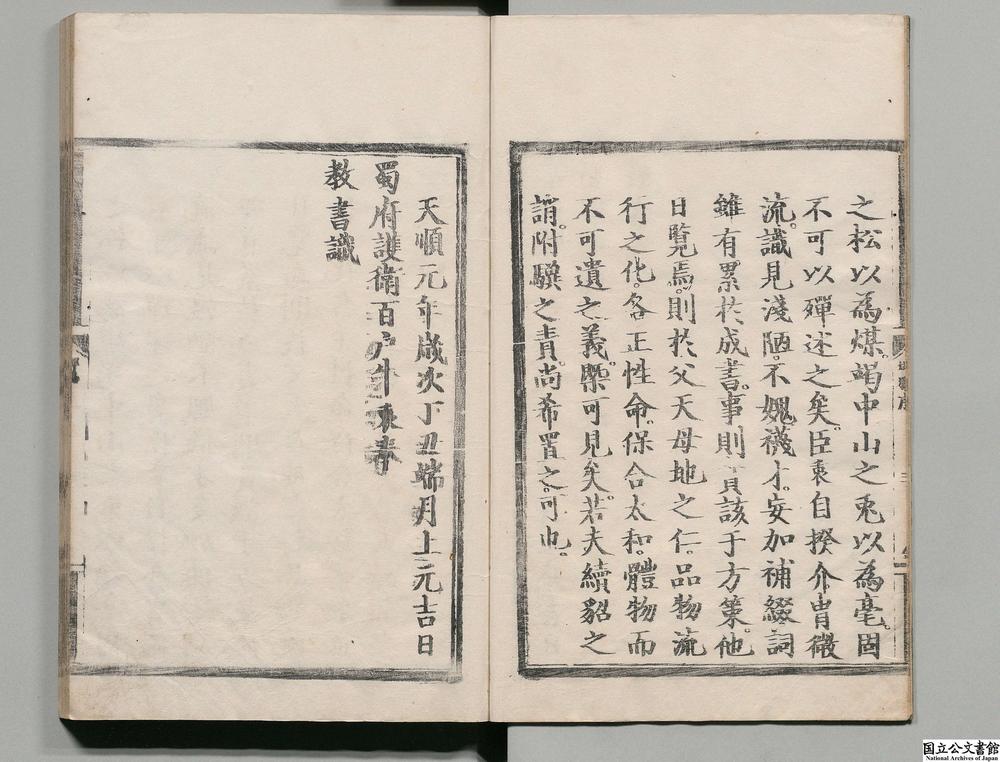 之松以為煤。竭中山之兎以為毫。固
不可以殫述之矣。臣衷自揆介胄微
流。識見淺陋。不媿襪才。妄加補綴詞
雖有累於成書。事則實該于方策。他
日覽焉。則於父天母地之仁。品物流
行之化。各正性命。保合太和。體物而
不可遺之義。槩可見矣。若夫續貂之
誚。附驥之責。尚希置之。可也。
天順元年歲次丁丑端月上元吉日
蜀府護衛百户
教書識
国立公文書館
National Archives of Japan